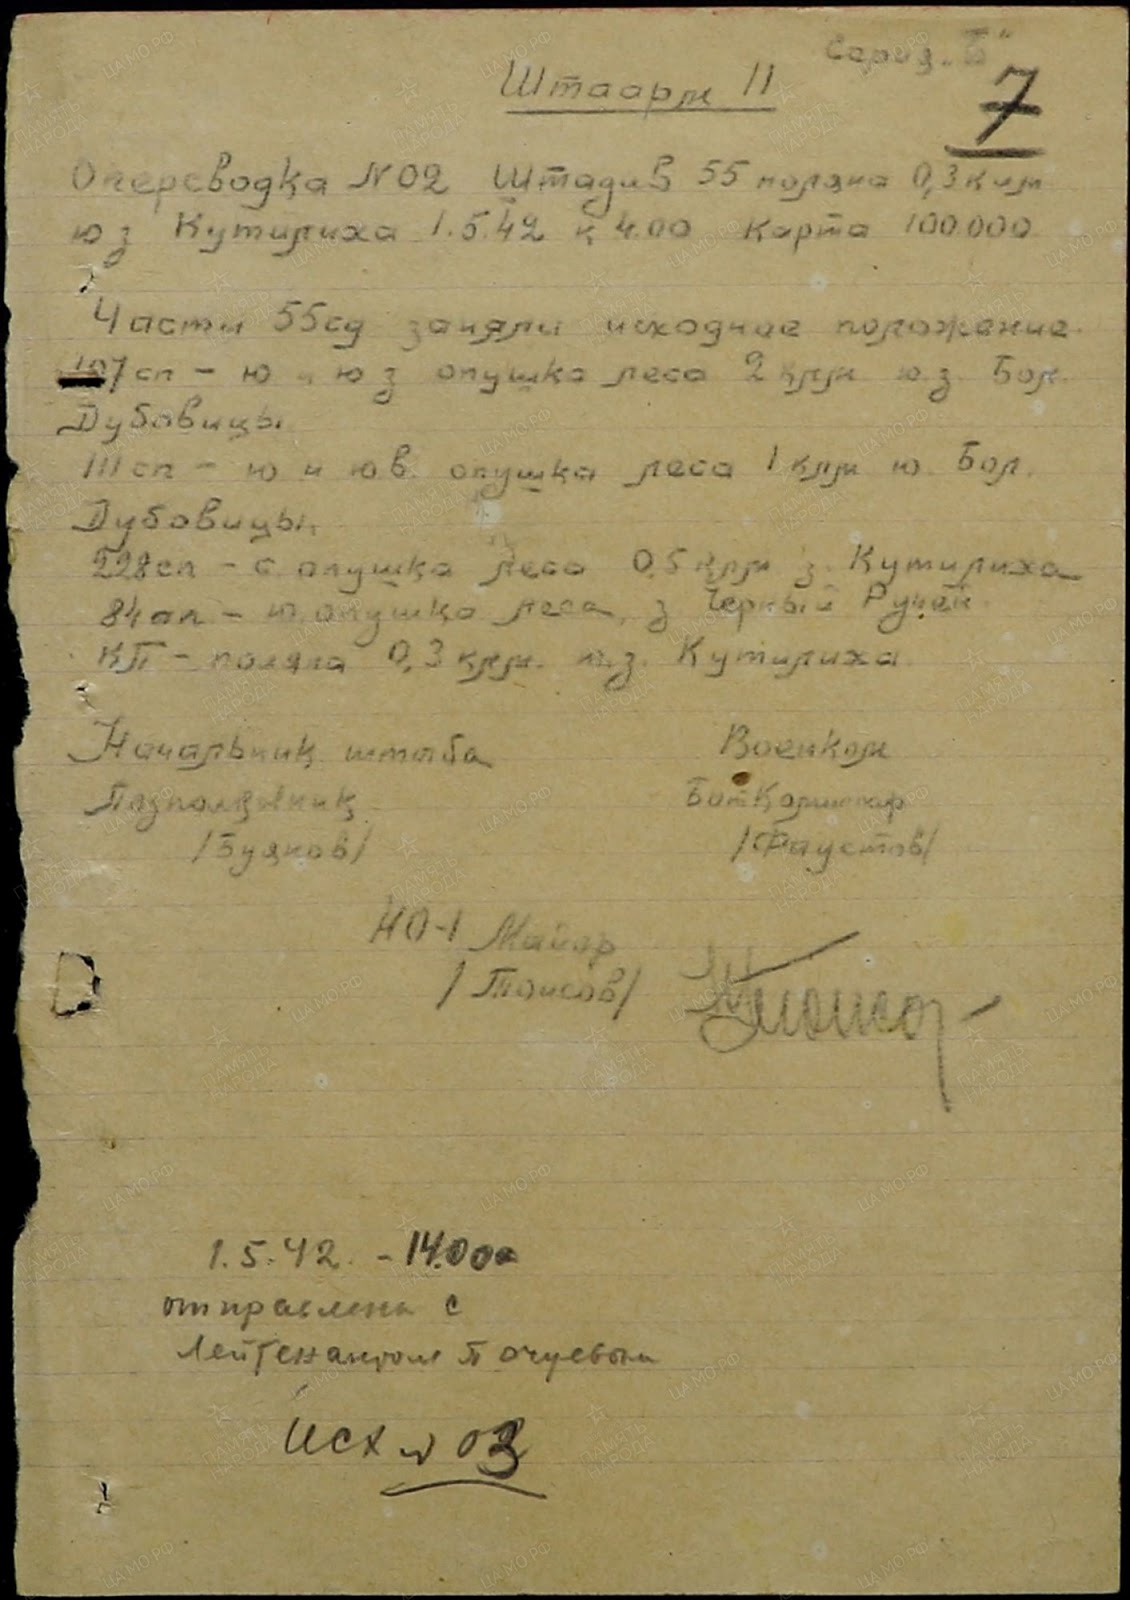 Серия "Б"
Штаарм 11
7
Оперсводка N02 Штадив 55 поляна 0,3 клм
юз Кутилиха 1.5.42 к 4.00 Карта 100.000
Части 55сд заняли исходное положение
107сп – ю и юз опушка леса 2 клм ю.з. Бол.
Дубовицы
111сп – ю и юв. опушка леса 1 клм ю. Бол.
Дубовицы,
228сп – с. опушка леса 0,5 клм з. Кутилиха
84ап – ю. опушка леса, з Черный Ручей.
КП – поляна 0,3 клм. ю.з. Кутилиха
Начальник штаба Военком
Подполковник Бат.Комиссар
/Буянов/ /Фаустов/
НО-1 Майор
1.5.42. – 14.00
отправлена с
Лейтенантом Почуевым
Исх N 03